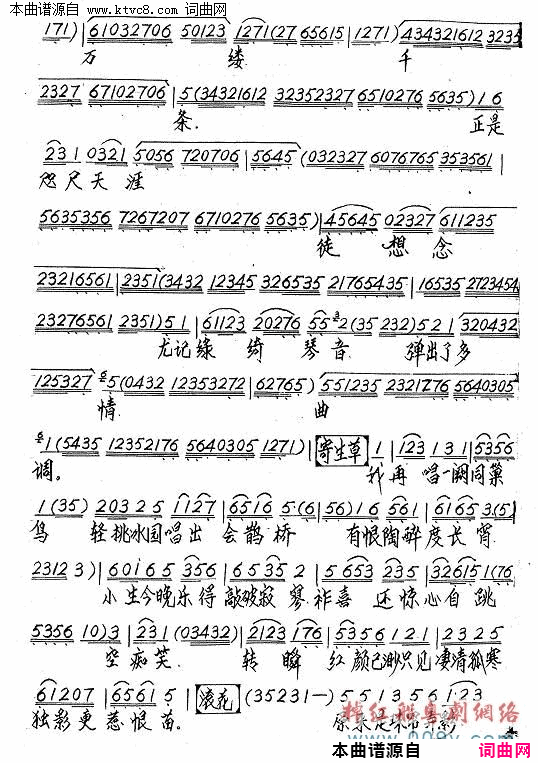 本曲谱源自 www.ktvc8.com 词曲网
171) | 61032706 50123 1271 (27 65615 | 1271) | 434321612 3235
万 缕 千
2327 67102706 | 5 (34321612 32352327 6510276 5635) 1 6
条. 正是
231 0321 5056 720706 | 5645 (032327 6076765 353561 |
咫尺天涯
5635356 7267207 6710276 5635) | 45645 02327 611235
徒 想 念
23216561 | 2351 (3432 12345 326535 21765435 | 16535 2723454
23276561 2351) 5 1 | 61123 20276 55 2 (35 232) 5 2 1 | 320432
尤记绿绮琴音 弹出了多
125327 5 (0432 12353272 | 62765) | 551235 2321276 5640305
情 曲
1 (5435 12352176 5640305 1271) | 寄生草 1 | 123 1 3 1 | 5356
调。 我再唱一阕同巢
1 (35) 2 0 3 2 5 1127 | 6516 5 (6 | 56) 1 6 561 | 6165 3 (5)
鸟 轻挑水国唱出会鹊桥 有恨陶醉度长宵
2312 3) | 60165 356 | 6535 2 | 5 653 235 | 326151 (76
小生今晚乐得敲破寂寥祚喜还惊心自跳
5356 10) 3 | 231 (03432) | 2123 176 | 5356 1 2 1 | 2 3 2 5
空痴笑 转瞬红颜已渺只见凄清孤寒
61207 | 6561 5 | 滚花 (35231—) 5 5 1 3 5 6 1 23
独影更惹恨苗。
粉红船粤剧网络
本曲谱源自 词曲网